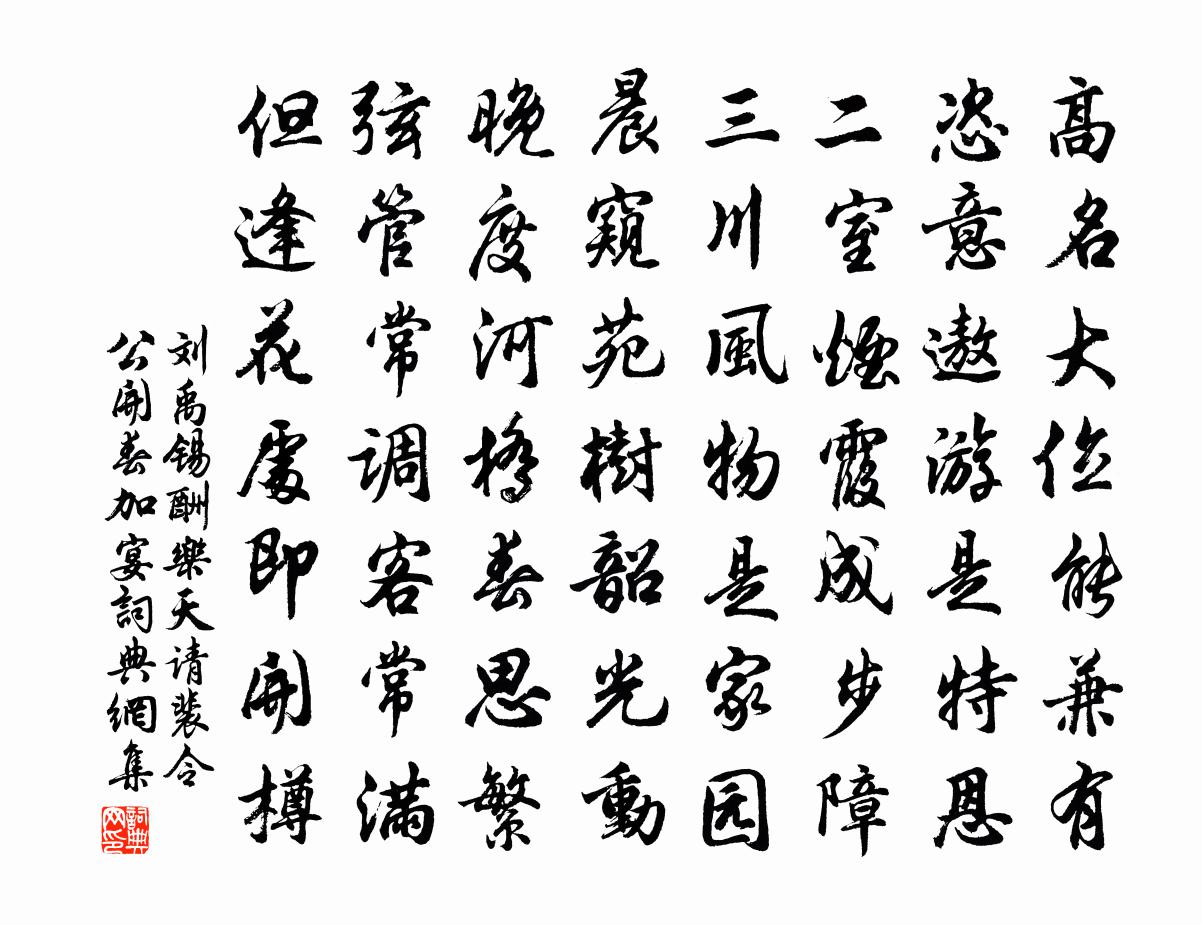 高名大位能兼有
恣意遨游是特恩
二室煙霞成步障
三川風物是家园
晨窺苑樹韶光動
晚度河橋春思繁
弦管常调客常满
但逢花處即開樽
刘禹锡酬樂天请裴令
公開春加宴詞典網集
詞典网印